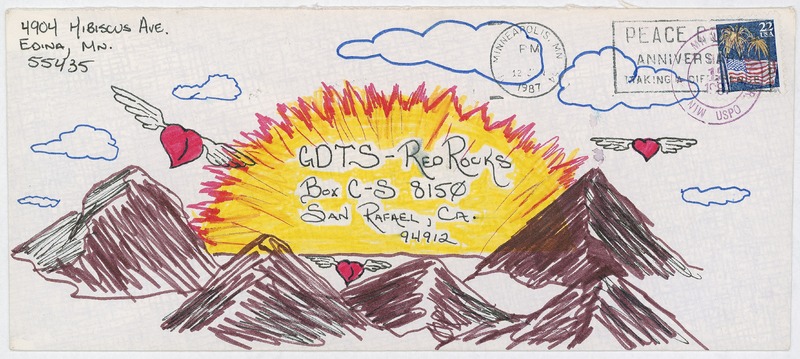 4904 Hibiscus Ave.
Edina, Mn.
55435
MINNEAPOLIS, MN
PM
1987
PEACE
ANNIVERSA
MAKING A DIF
22
USA
MIN USPO
GDTS - Red Rocks
Box C-S 8150
San Rafael, Ca.
94912